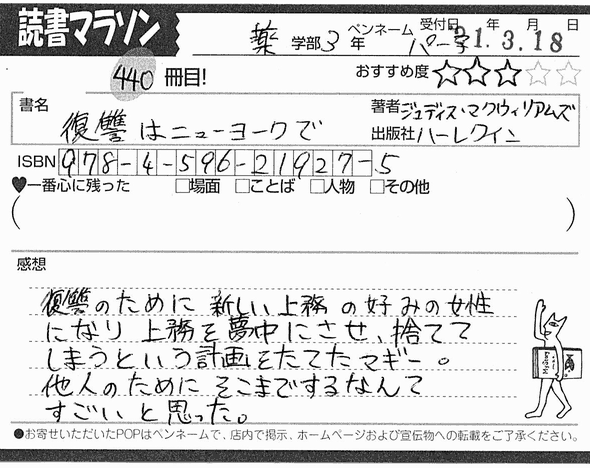 読書マラソン
薬 学部 3 年 ペンネーム パー子 受付日 '21.3.18 年 月 日
440 冊目! おすすめ度 ★★★☆☆
書名 復讐はニューヨークで
著者 ジュディス・マクウィリアムズ
出版社 ハーレクイン
ISBN 978-4-596-21927-5
♥一番心に残った □場面 □ことば □人物 □その他
( )
感想
復讐のために 新しい上務の好みの女性
になり 上務を夢中にさせ、捨てて
しまうという計画をたてたマギー。
他人のために そこまでするなんて
すごいと思った。
●お寄せいただいたPOPはペンネームで、店内で掲示、ホームページおよび宣伝物への転載をご了承ください。